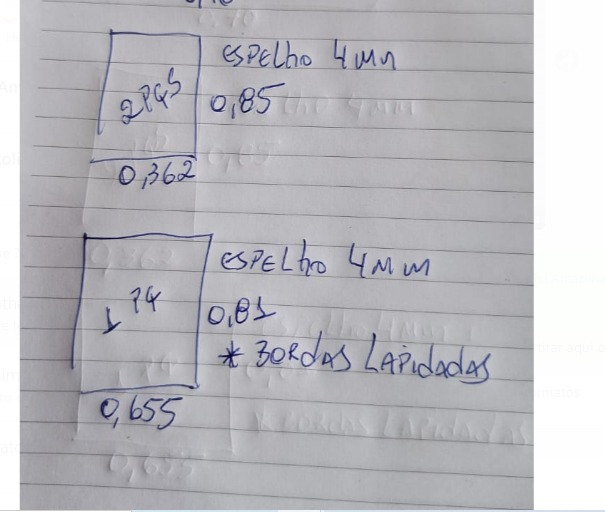 ESPELHO 4MM
2 PÇS
0,85
0,362
ESPELHO 4MM
1 PÇ
0,81
* BORDAS LAPIDADAS
0,655